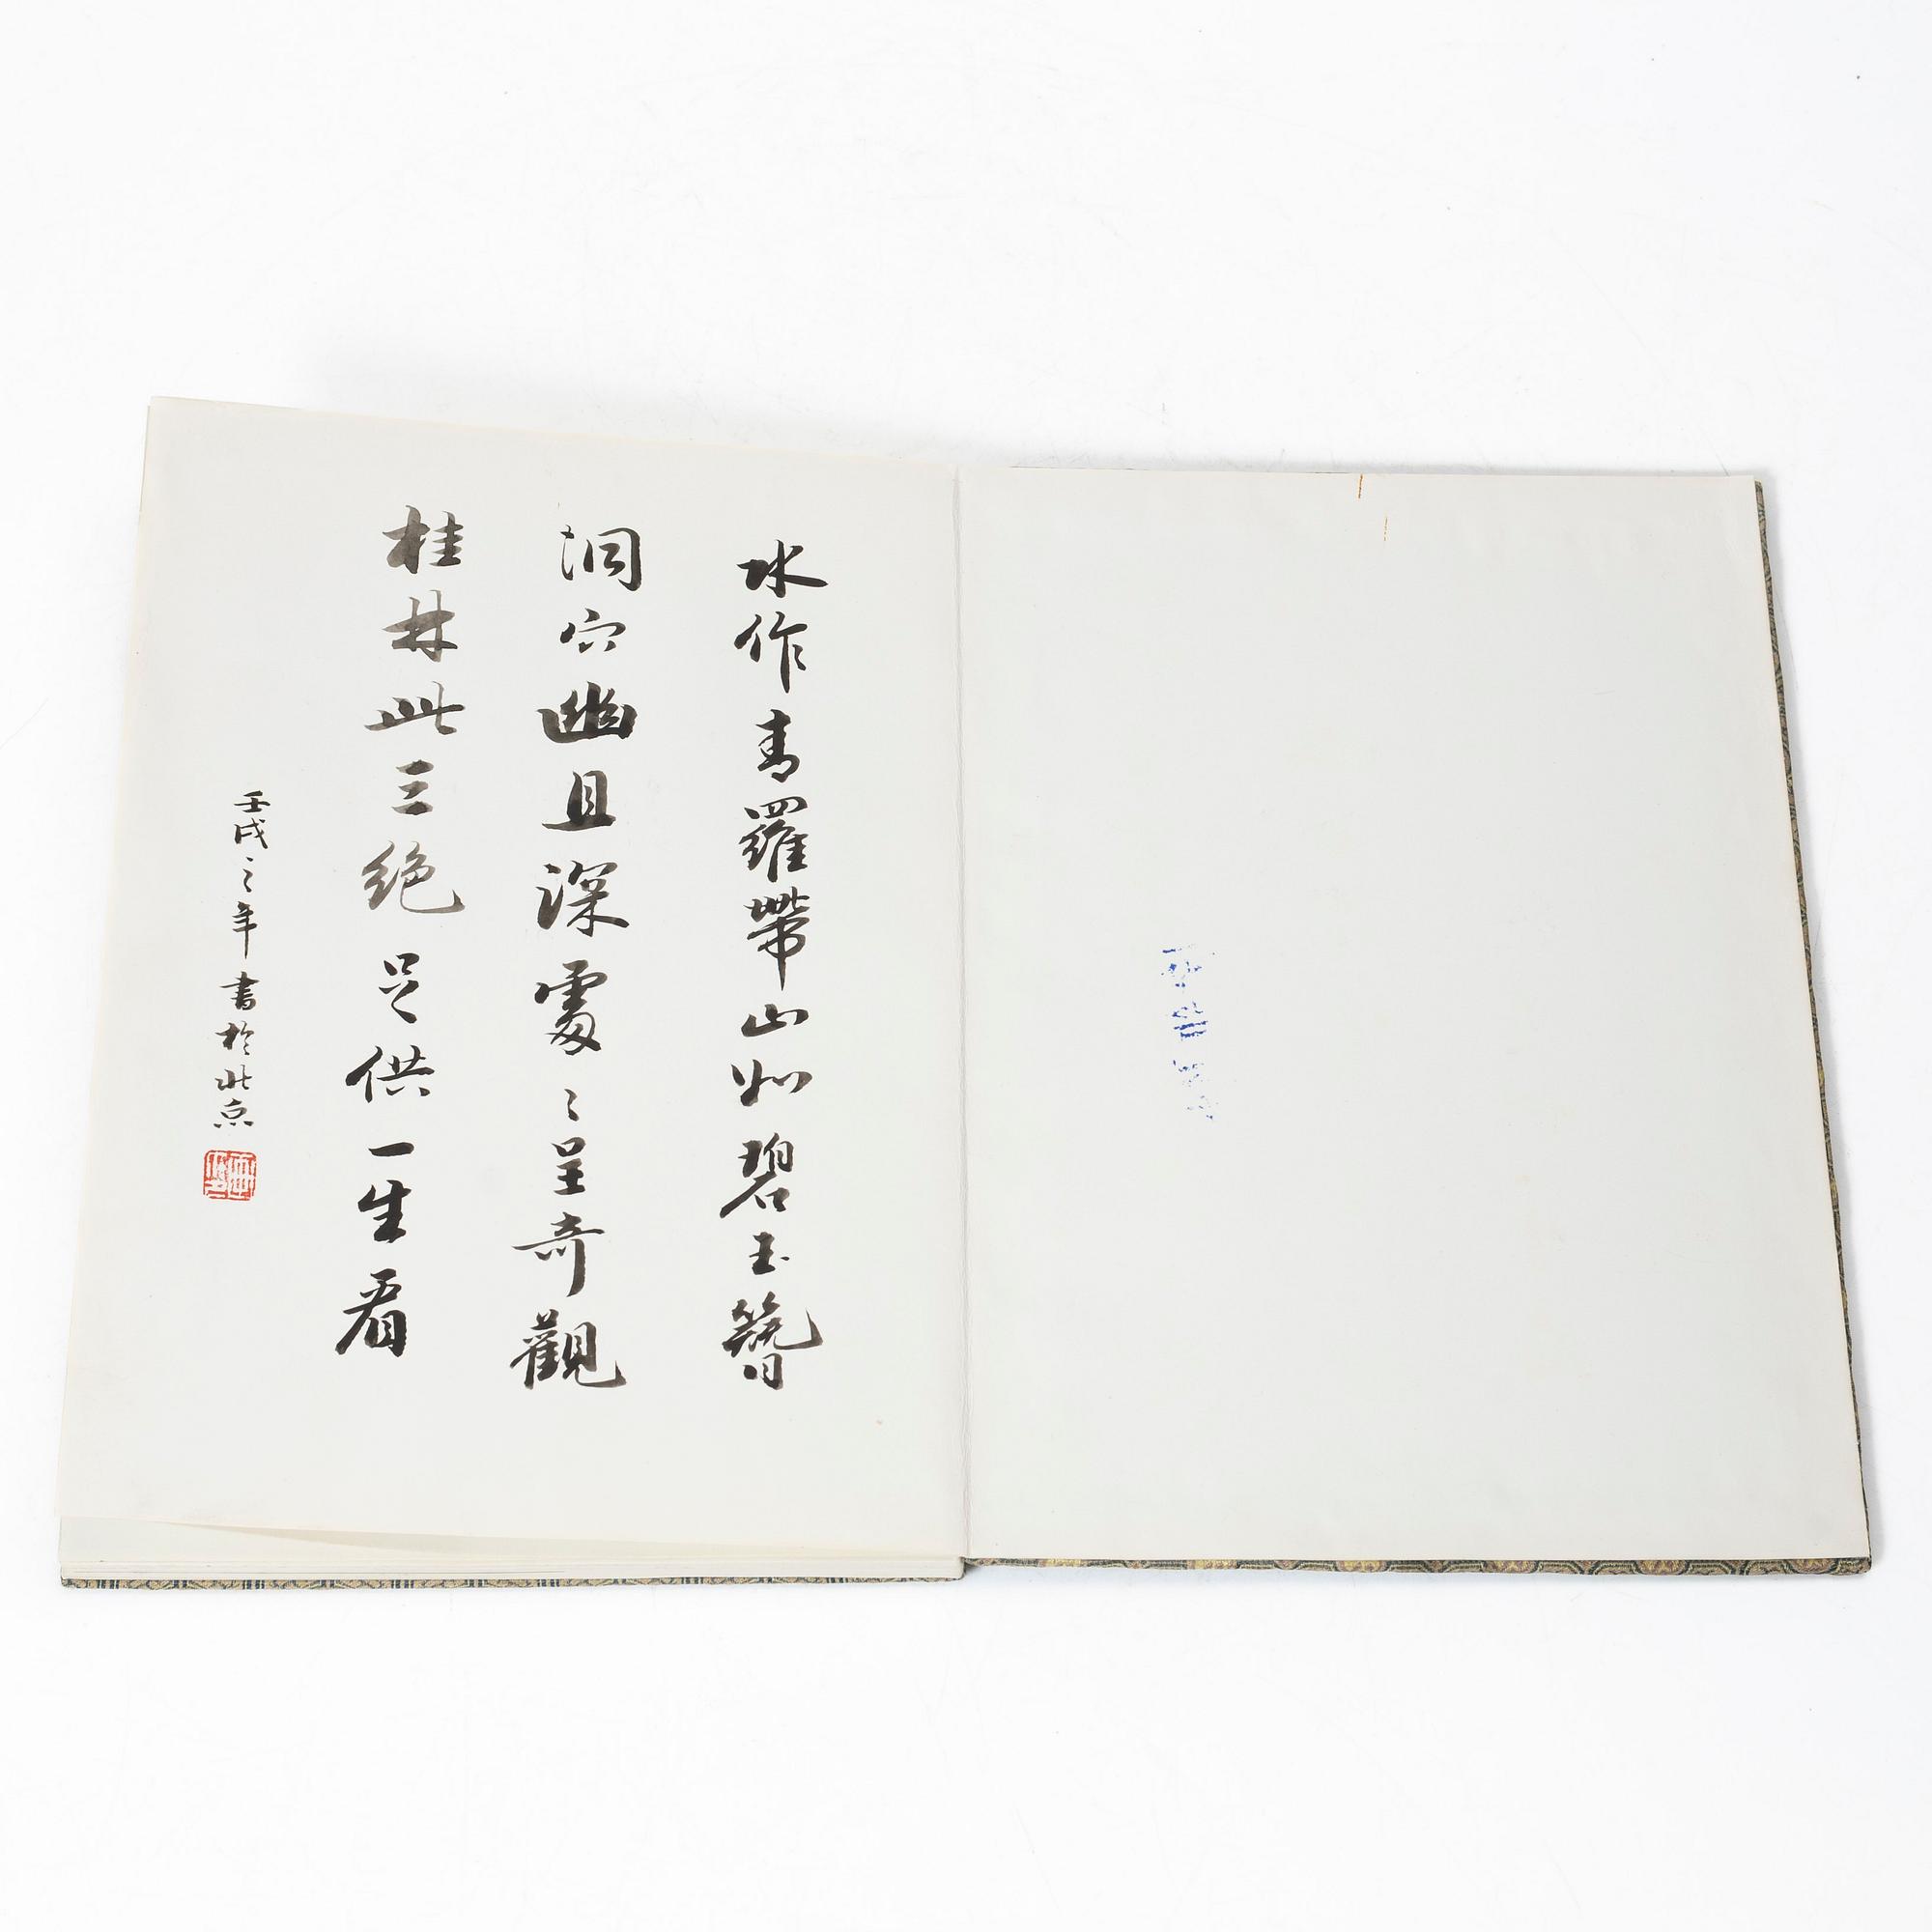 水作青羅帶山如碧玉簪
洞穴幽且深處〻呈奇觀
桂林此三絕足供一生看
壬戌之年書於北京